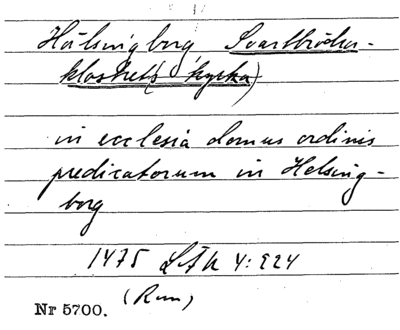 Hälsingborg Svartbröder-
klostrets (kyrka)
in ecclesia domus ordinis
predicatorum in Helsing-
borg
1475 LÄU 4:224
Nr 5700.